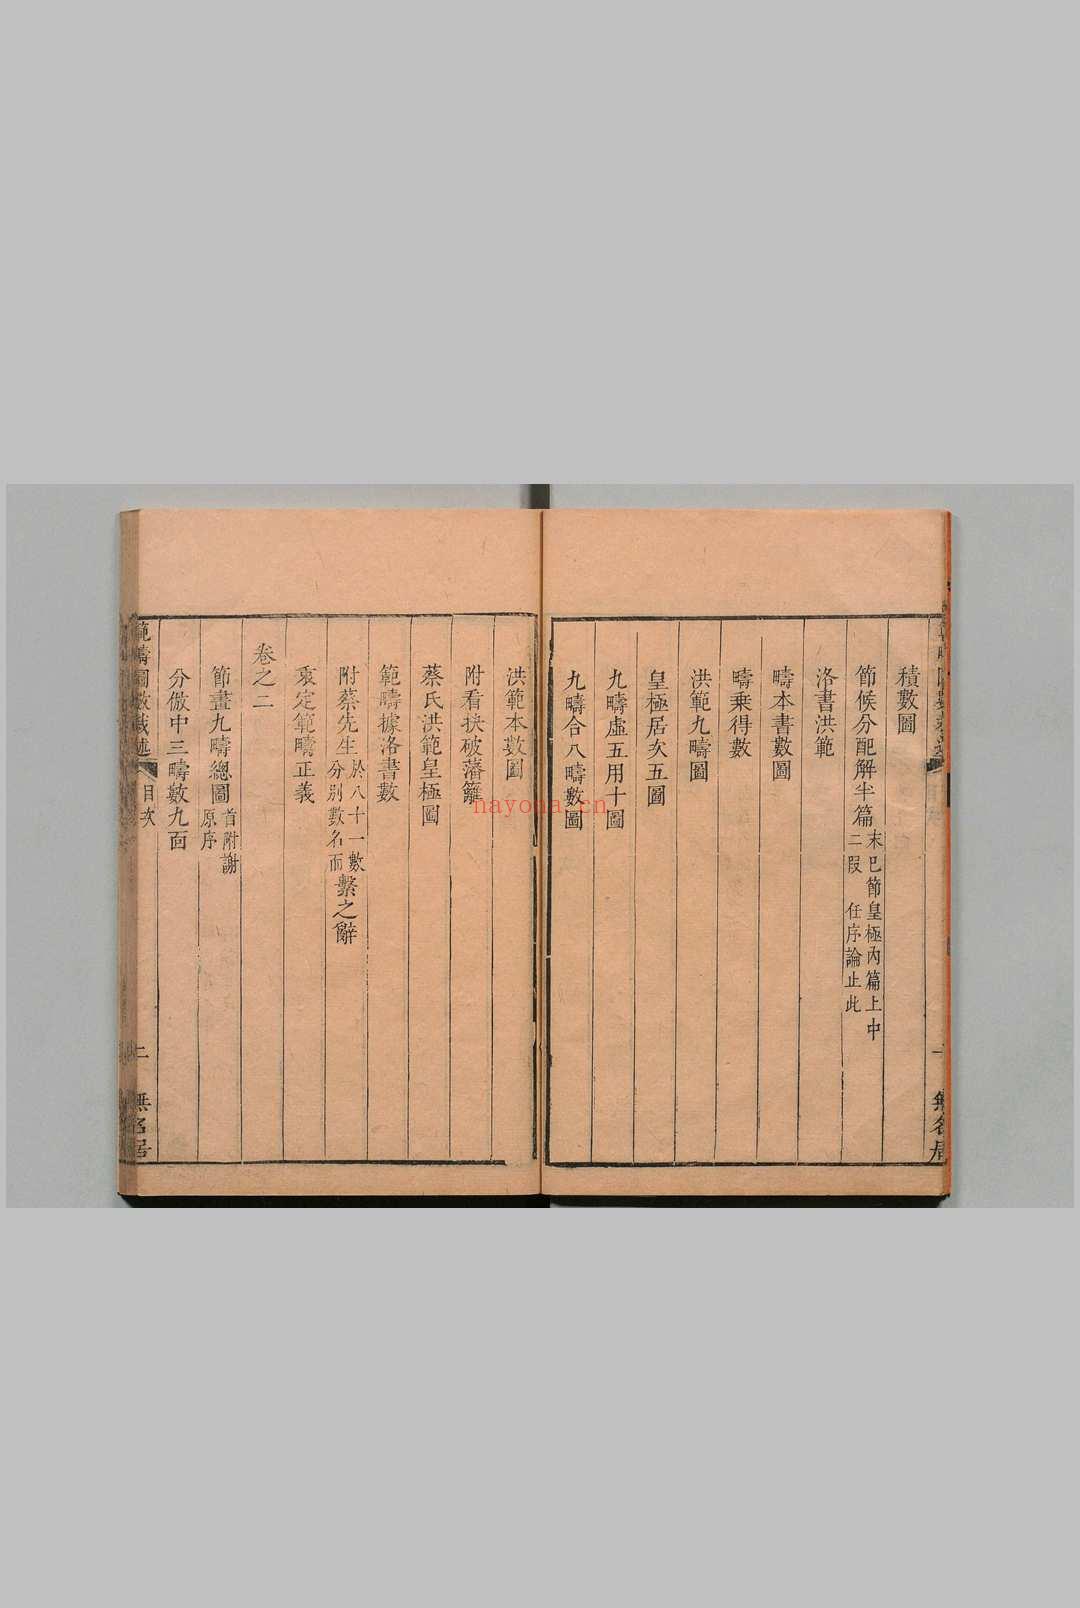 積數圖
節候分配解半篇末巳節皇極內篇上中二叚 任序論止此
洛書洪範
疇本書數圖
疇乗得數
洪範九疇圖
皇極居次五圖
九疇虛五用十圖
九疇合八疇數圖
無名居
洪範本數圖
附看抉破藩籬
蔡氏洪範皇極圖
範疇據洛書數
附蔡先生於八十一數分別數名而繫之辭
裒定範疇正義
卷之二
節畫九疇總圖首附謝原序
分倣中三疇數九面
範疇圖數 述 目次 二 無名居
nayona.cn